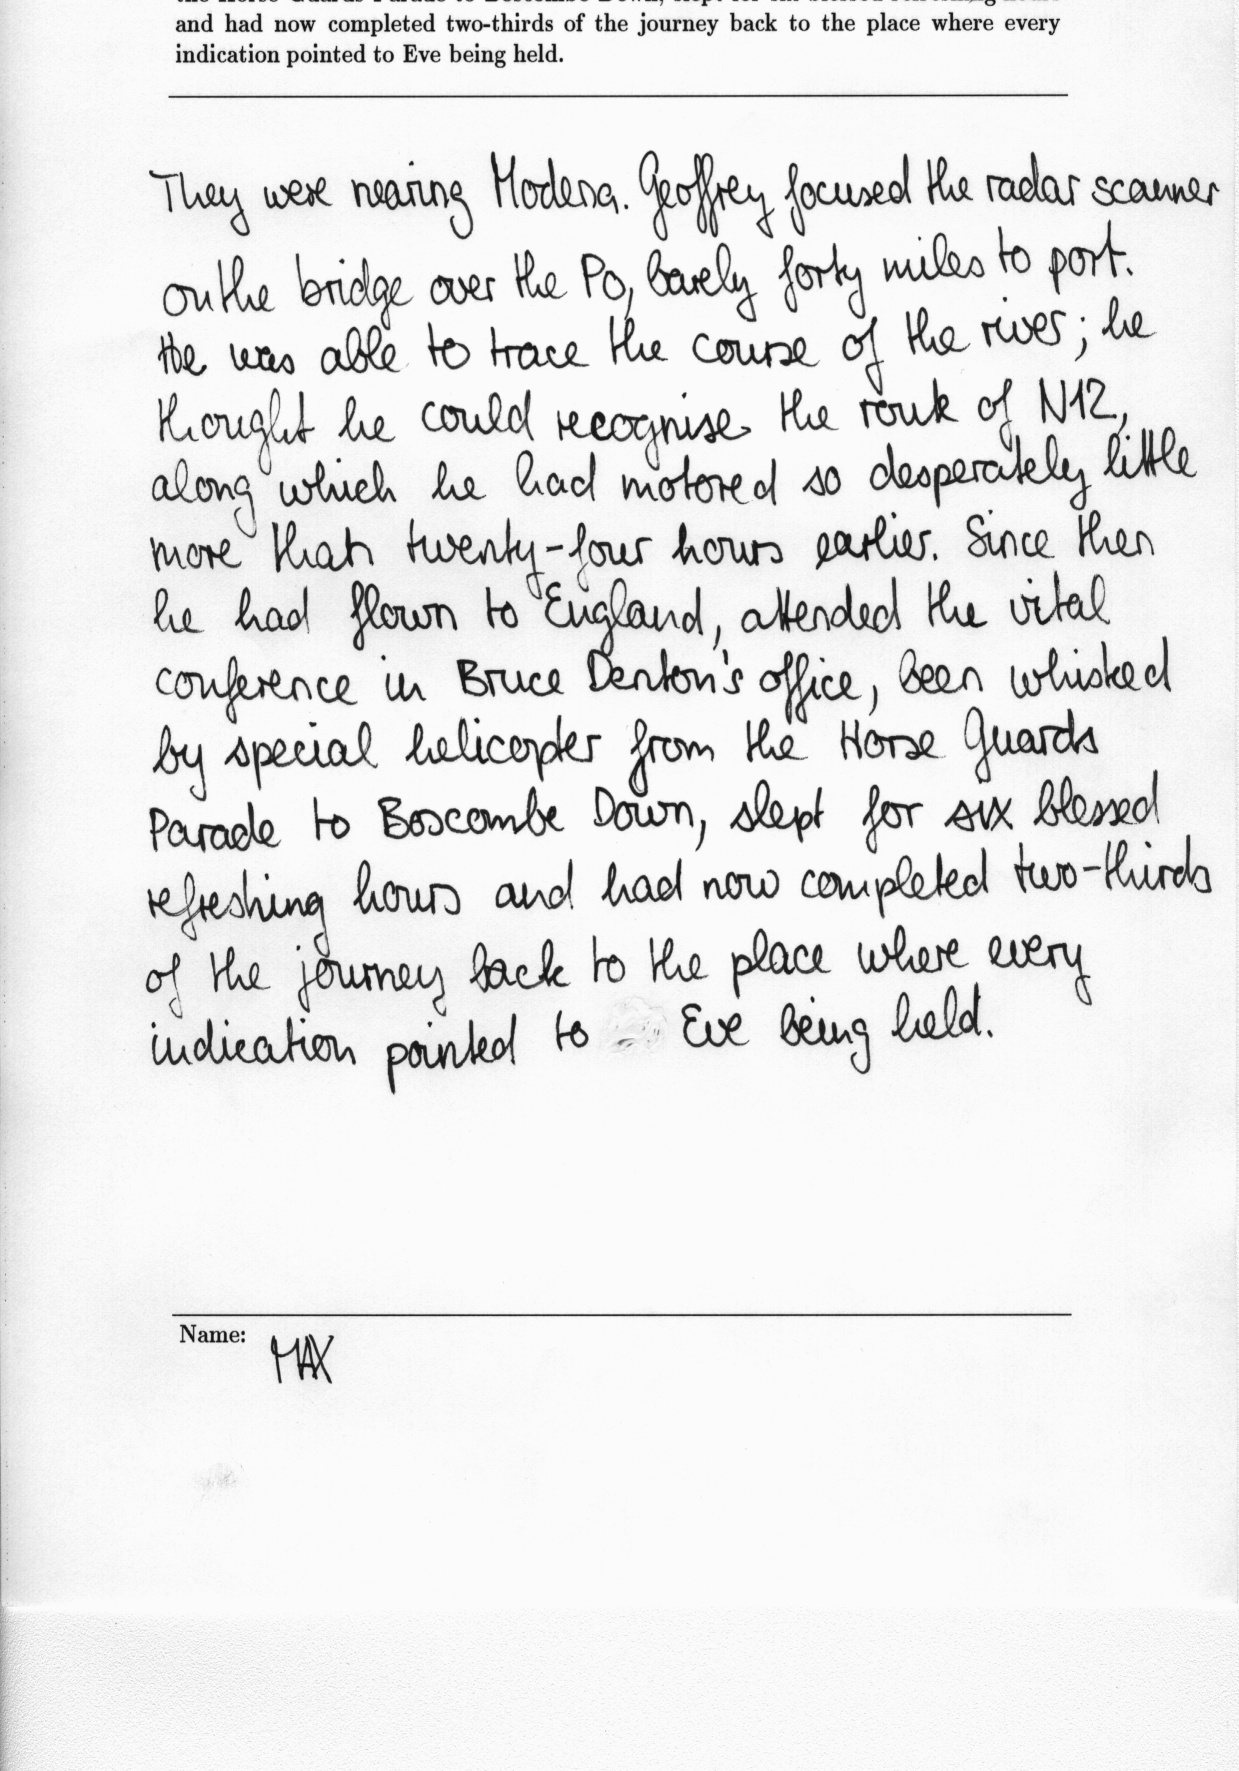 and had now completed two-thirds of the journey back to the place where every
indication pointed to Eve being held.
They were nearing Modena. Geoffrey focused the radar scanner
on the bridge over the Po, barely forty miles to port.
He was able to trace the course of the river; he
thought he could recognise the route of N12,
along which he had motored so desperately little
more than twenty-four hours earlier. Since then
he had flown to England, attended the vital
conference in Bruce Denton's office, been whisked
by special helicopter from the Horse Guards
Parade to Boscombe Down, slept for six blessed
refreshing hours and had now completed two-thirds
of the journey back to the place where every
indication pointed to Eve being held.
Name: MAX